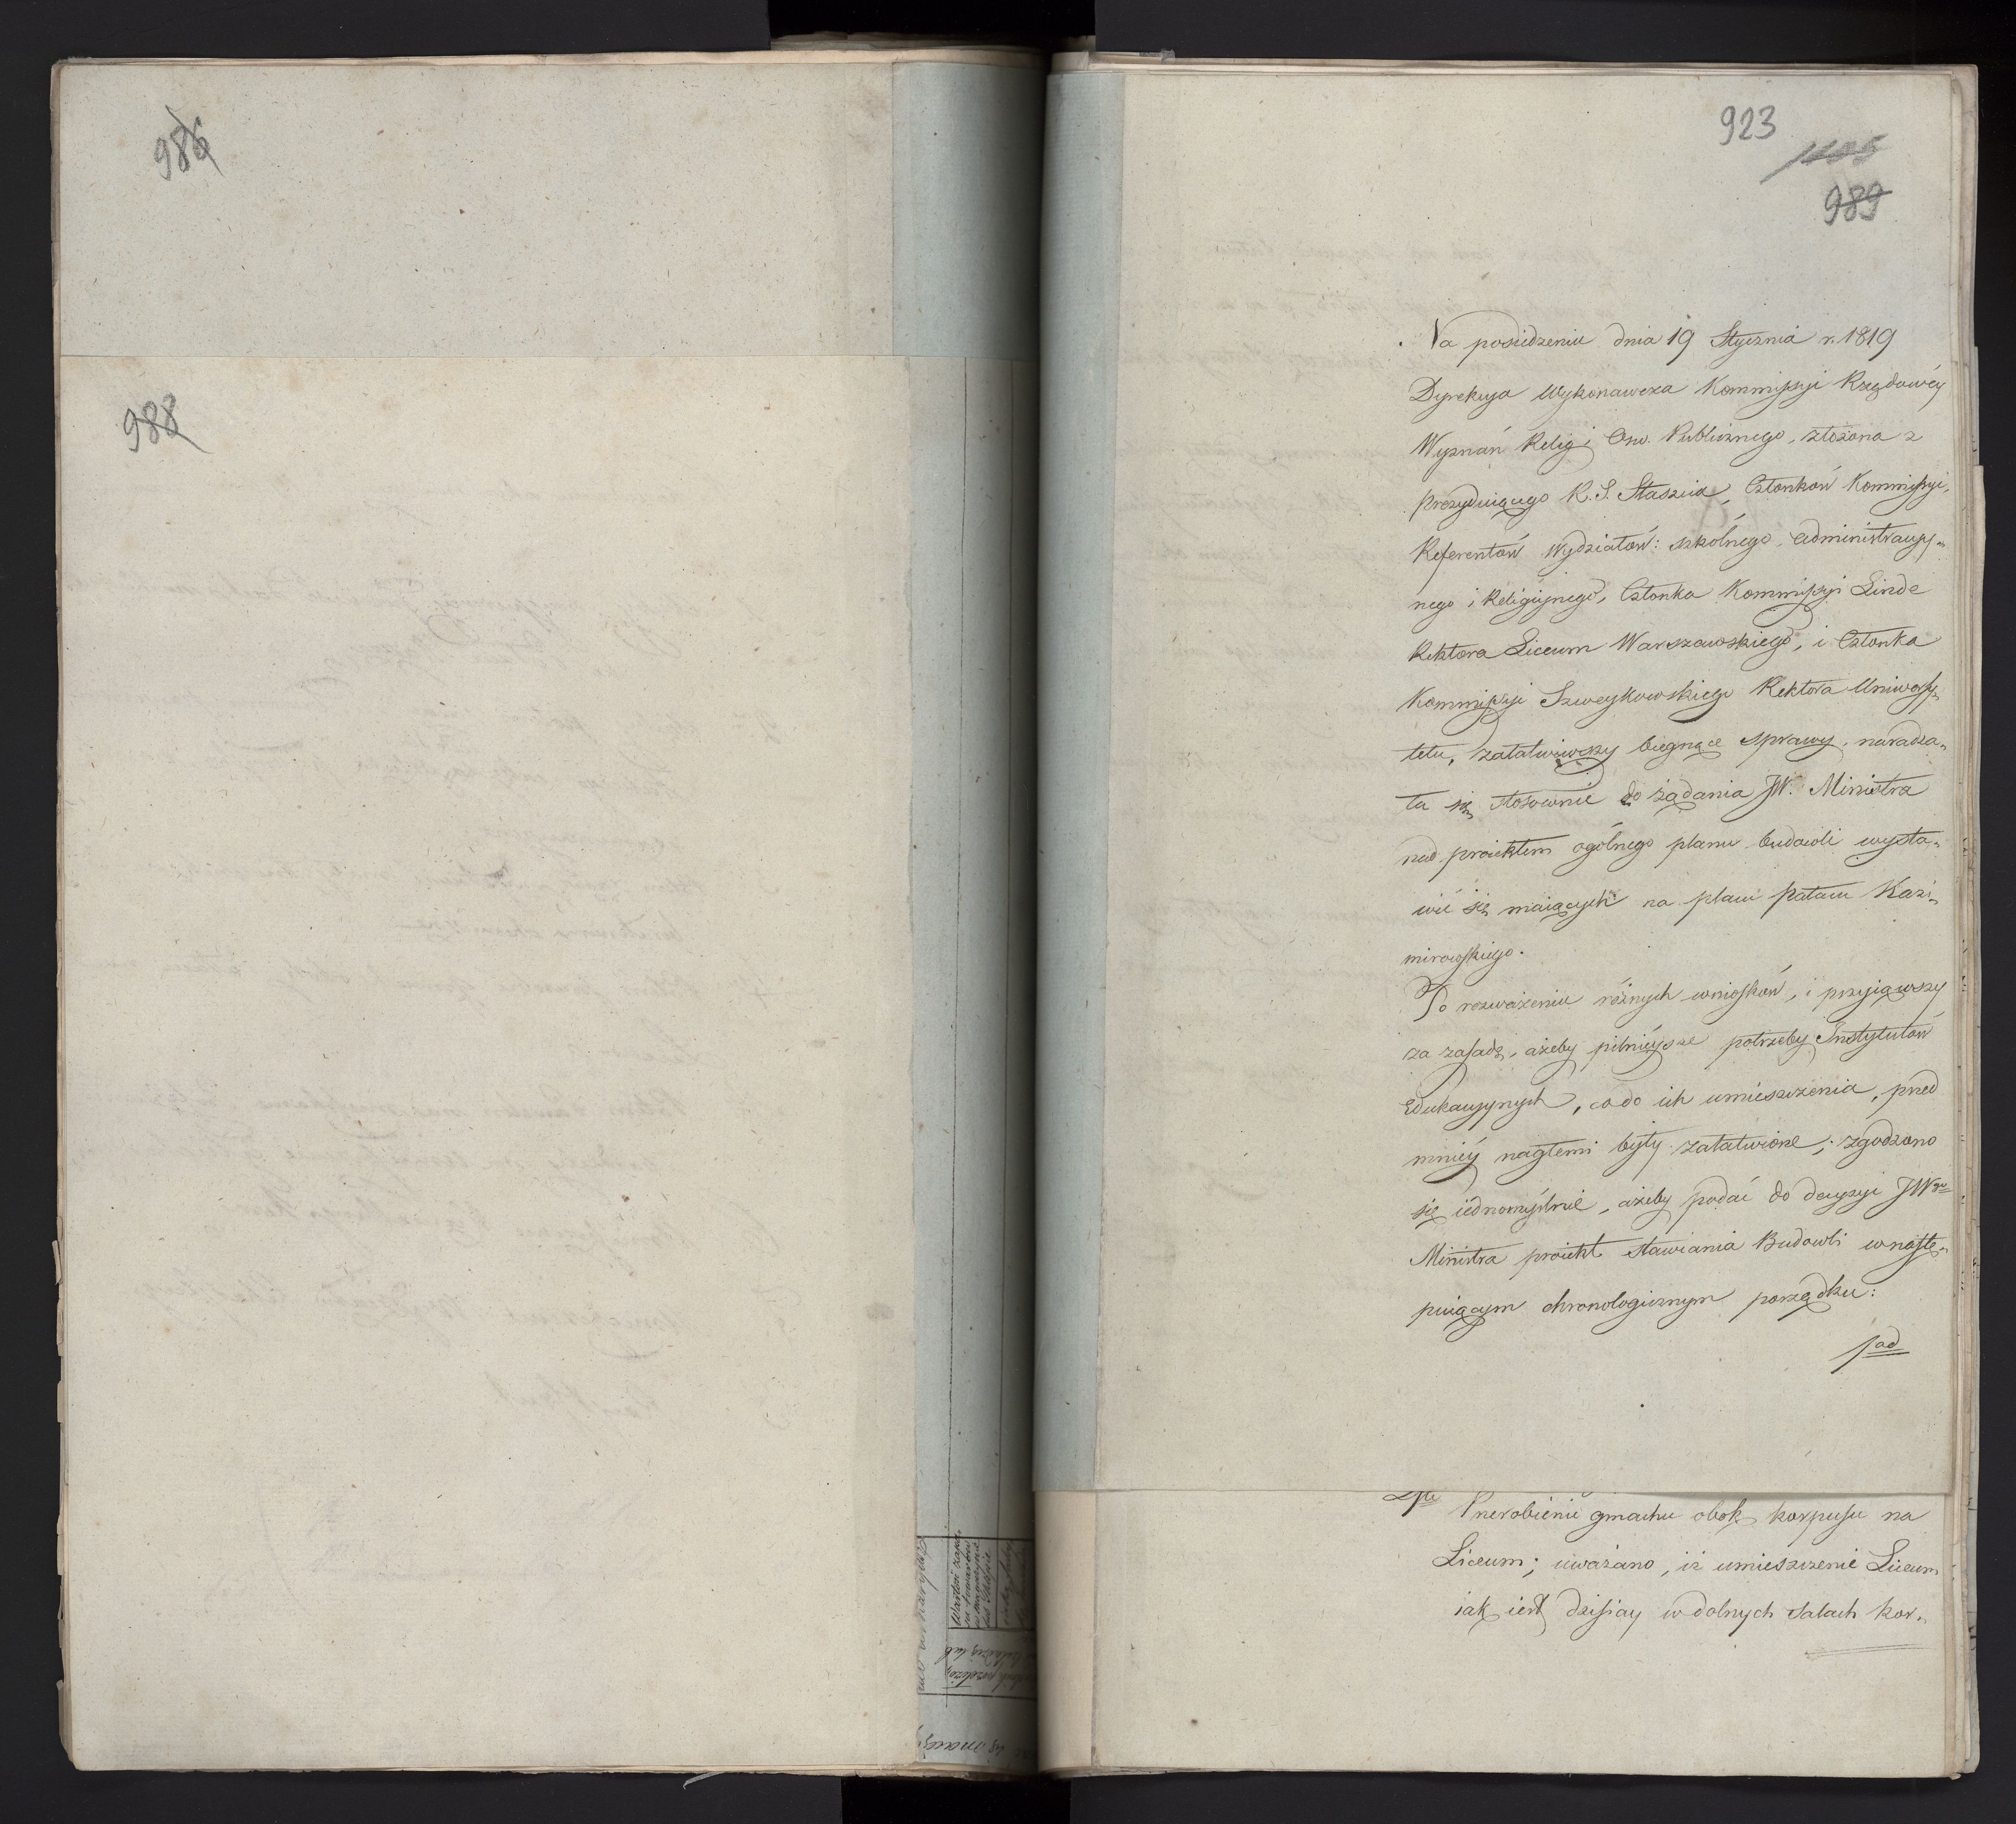 986
988
923
1105
989
Na posiedzeniu dnia 19 Stycznia r. 1819
Dyrekcya Wykonawcza Kommissyi Rządowéy
Wyznań Relig i Ośw. Publicznego, złożona z
prezyduiącego R. S. Staszica, Członków Kommissyi,
Referentów wydziałów: szkólnego, administracyy„
nego i Religiynego, Członka Kommissyi Linde
Rektora Liceum Warszawskiego, i Członka
Kommissyi Szweykowskiego Rektora Uniwersy„
tetu, załatwiwszy biegnące sprawy, naradza„
ła się stosownie do żądania JW. Ministra
nad proiektem ogólnego planu budowli wysta„
wić się maiących na placu Pałacu Kazi„
mirowskiego.
Po rozważeniu różnych wniosków, i przyiąwszy
za zasadę, ażeby pilnieysze potrzeby Instytutów
Edukacyynych, co do ich umieszczenia, przed
mniéy nagłemi były załatwione; zgodzono
się iednomyślnie, ażeby podać do decyzyi JWgo
Ministra proiekt stawiania Budowli w nastę„
puiącym chronologicznym porządku:
pad
2re Przerobienie gmachu obok korpusu na
Liceum; uważano, iż umieszczenie Liceum
iak iest dzisiay w dolnych salach kor„